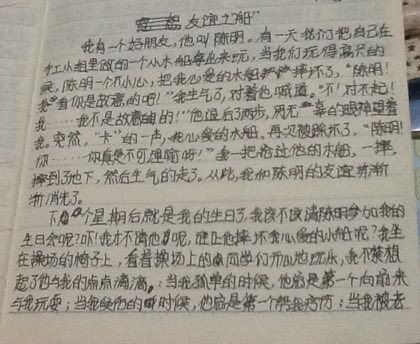 友谊之船"
我有一个好朋友,他叫陈明。有一天我们把自己在
红小组里做的一个小水船拿出来玩,当我们玩得高兴的
候,陈明一个不小心,把我心爱的木船摔坏了,"陈明!
我看你是故意的吧!"我生气了,对着他喊道。"不!对不起!
我……我不是故意的的!"他退后了两步,用无辜的眼神望着
我。突然,"卡"的一声,我心爱的木船,再次被踩坏了。"陈明!
你……你真是不可理喻呀!"我一把抢过他的木船,一摔,
摔到了地下,然后生气的走了。从此,我和陈明的友谊渐渐
渐消失了。
下个星期后就是我的生日了,我该不该请陈明参加我的
生日会呢?吓!我才不请他呢,谁让他摔坏我心爱的小船呢?我坐
在操场的椅子上,看着操场上的同学们开心地玩乐,我不禁想
起了他与我的点点滴滴。:当我孤单的时候,他总是第一个向前来
与我玩耍;当我受伤的时候,他总是第一个帮我疗伤;当我被老